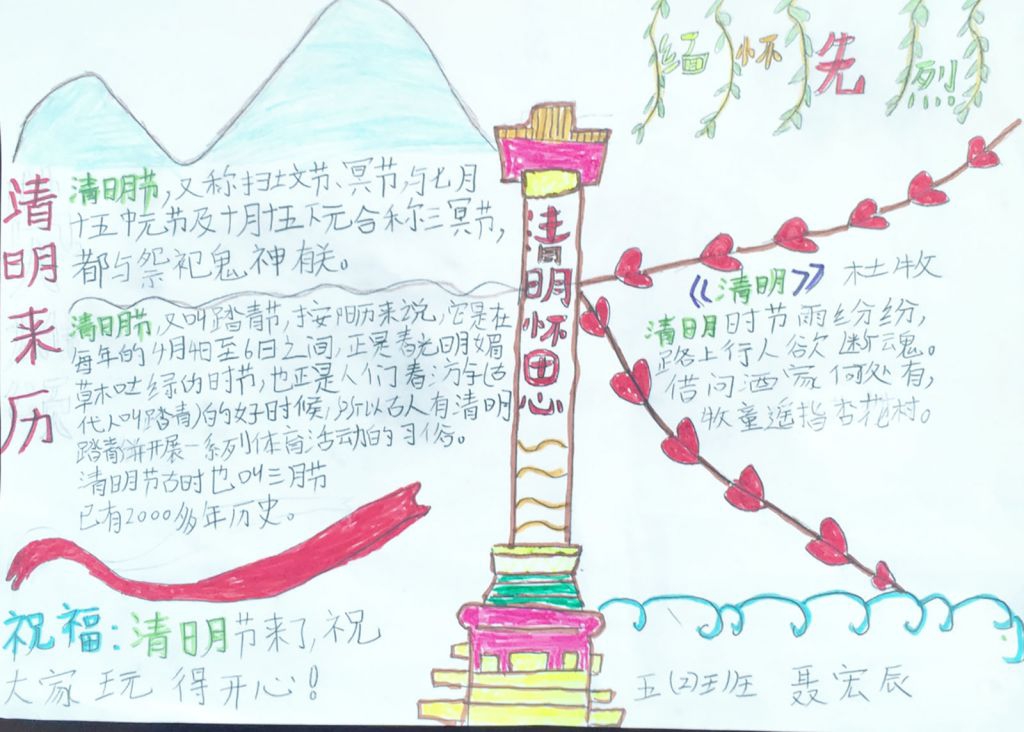 缅怀先烈
清明来历
清明节,又称扫坟节、冥节,与七月
十五中元节及十月十五下元合称三冥节,
都与祭祀鬼神有关。
清明节,又叫踏青节,按阳历来说,它是在
每年的4月4日至6日之间,正是春光明媚
草木吐绿的时节,也正是人们春游(古
代人叫踏青)的好时候,所以古人有清明
踏青并开展一系列体育活动的习俗。
清明节古时也叫三月节
已有2000多年历史。
清明怀思
《清明》 杜牧
清明时节雨纷纷,
路上行人欲断魂。
借问酒家何处有,
牧童遥指杏花村。
祝福:清明节来了,祝
大家玩得开心!
五(2)班 聂宏辰